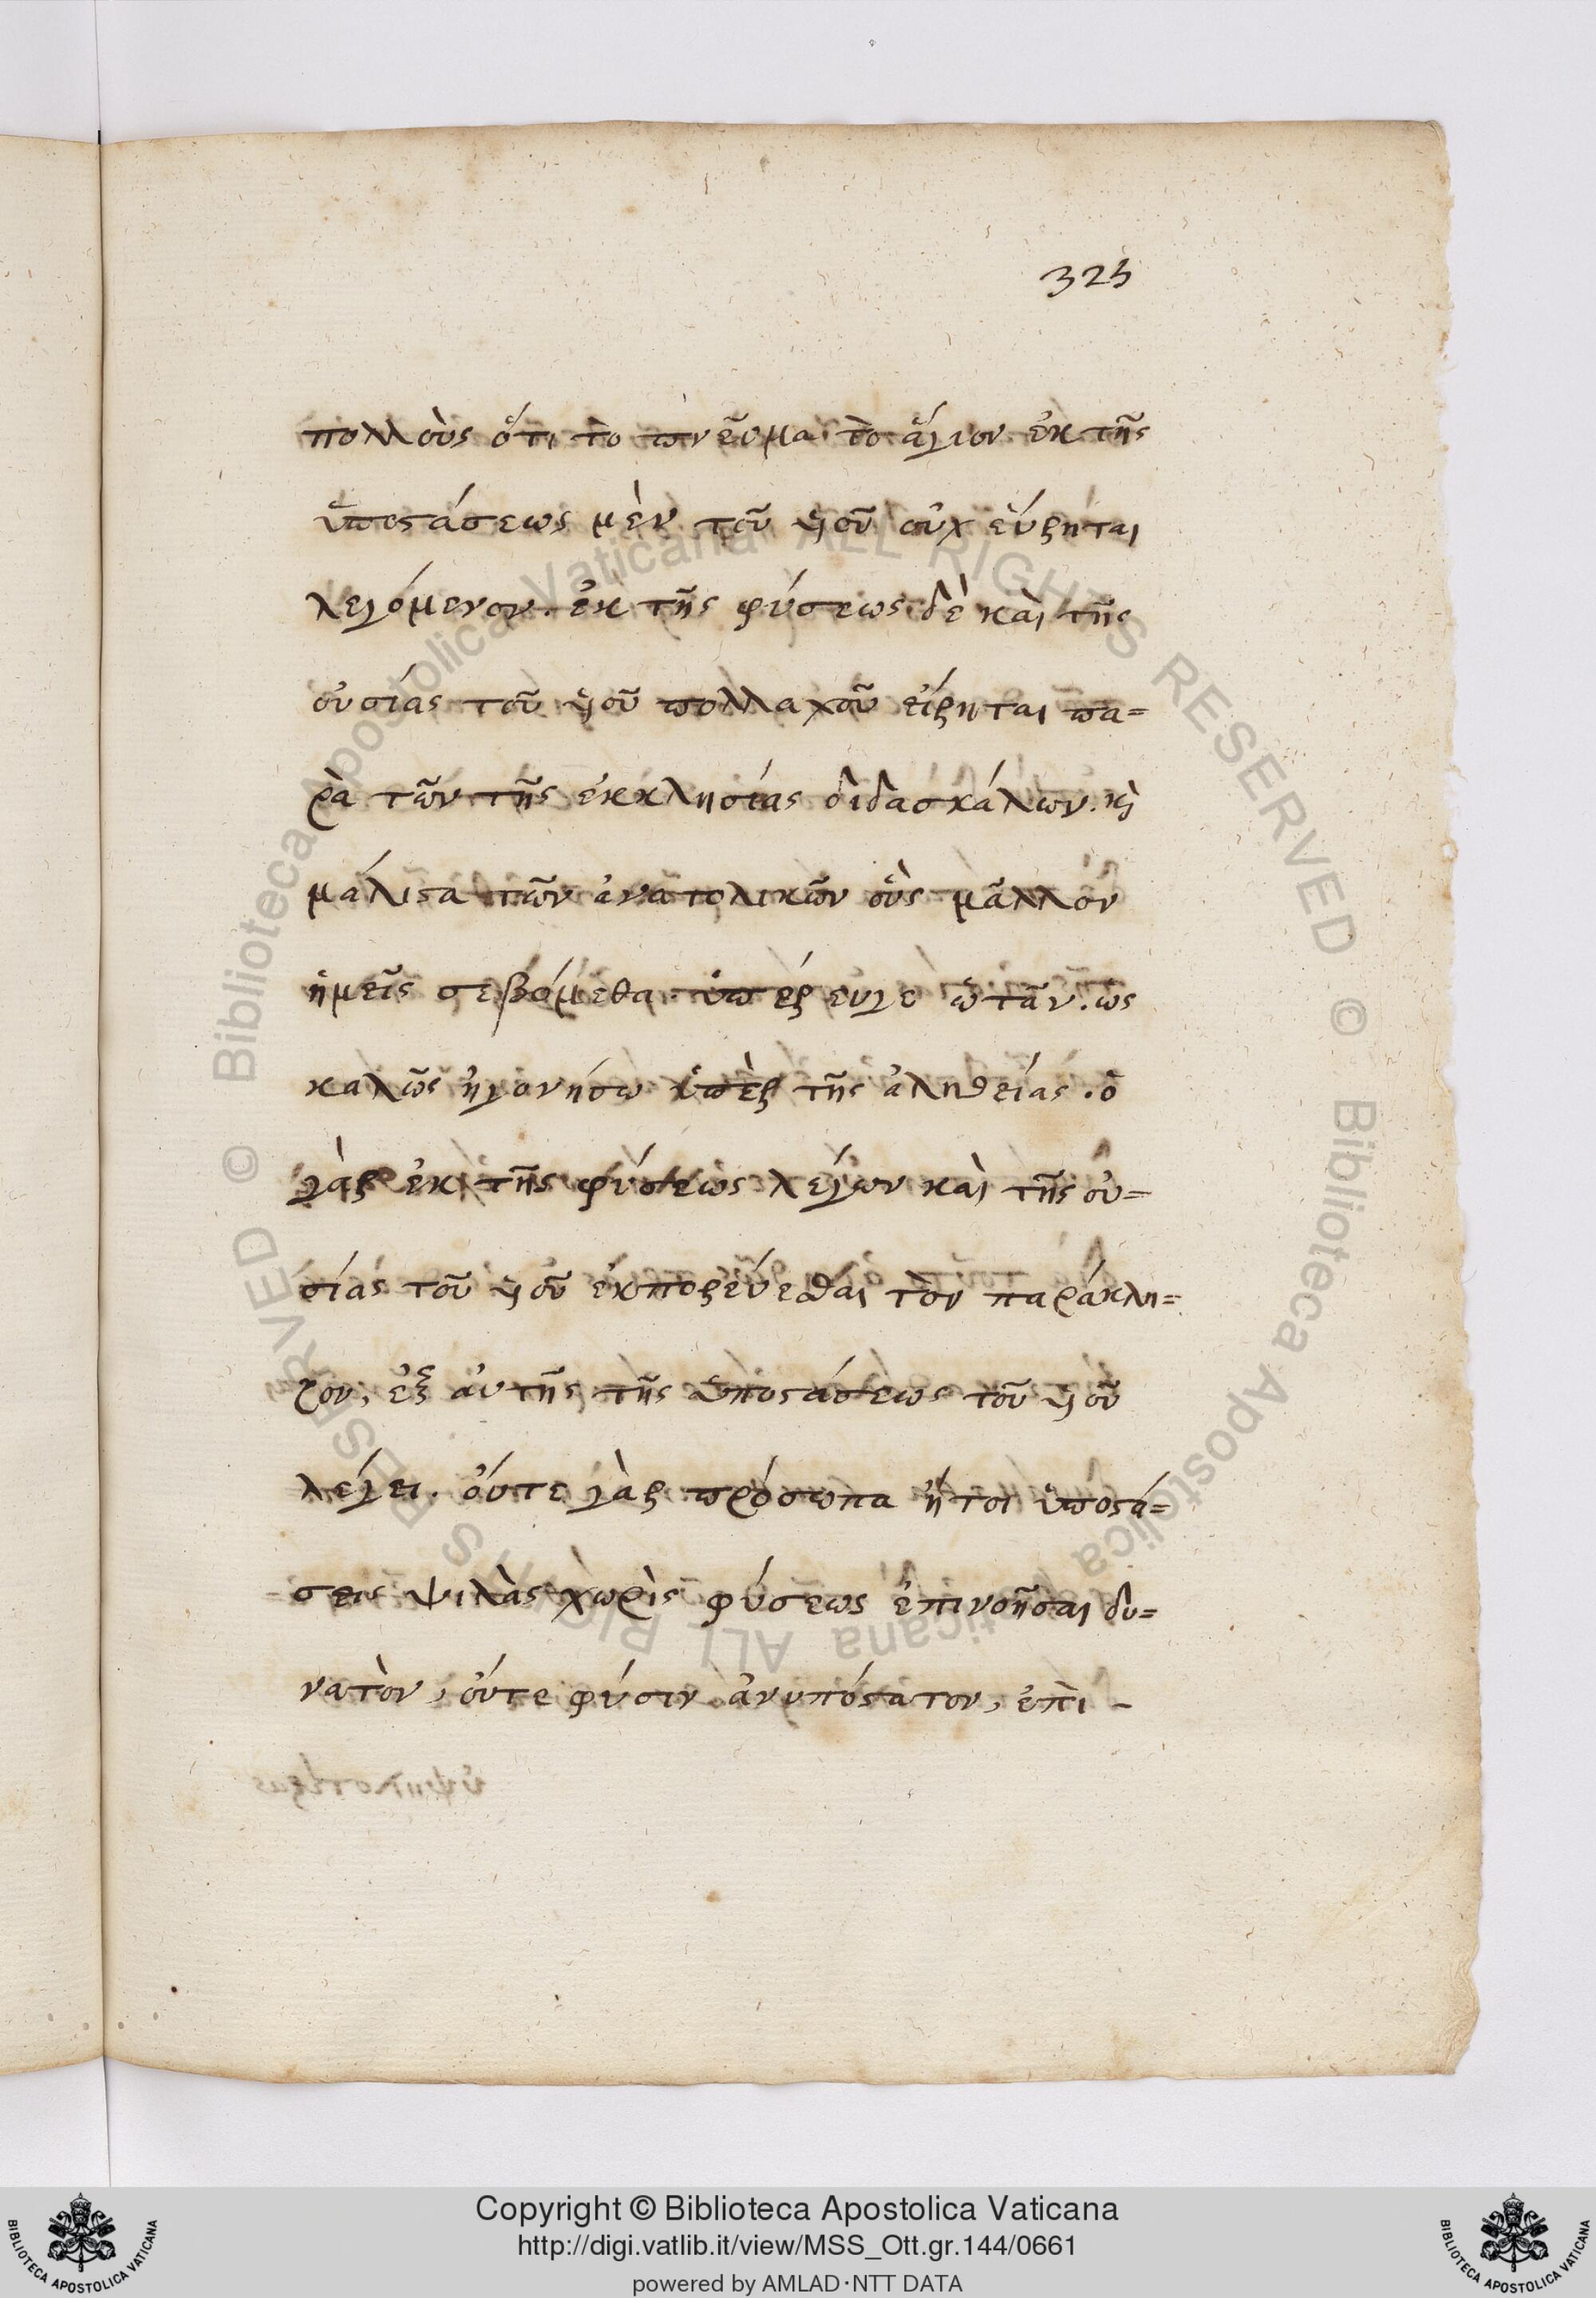 323
πολλοὺς ὅτι τὸ πνεῦμα τὸ ἅγιον ἐκ τῆς
ὑποστάσεως μὲν τοῦ υἱοῦ οὐχ εὕρηται
λεγόμενον. ἐκ τῆς φύσεως δὲ καὶ τῆς
οὐσίας τοῦ υἱοῦ πολλαχοῦ εἴρηται πα=
ρὰ τῶν τῆς ἐκκλησίας διδασκάλων. κὶ
μάλιστα τῶν ἀνατολικῶν οὓς μᾶλλον
ἡμεῖς σεβόμεθα. ὑπέρευγε ὦ τᾶν. ὡς
καλῶς ἠγονήσω ὑπὲρ τῆς ἀληθείας. ὁ
γὰρ ἐκ τῆς φύσεως λέγων καὶ τῆς οὐ=
σίας τοῦ υἱοῦ ἐκπορεύεσθαι τὸν παράκλη=
τον, ἐξ αὐτῆς τῆς ὑποστάσεως τοῦ υἱοῦ
λέγει. οὔτε γὰρ πρόσωπα ἤτοι ὑποστά=
σεις ψιλὰς χωρὶς φύσεως ἐπινοῆσαι δυ=
νατὸν, οὔτε φύσιν ἀνυπόστατον, ἐπὶ -
© Biblioteca Apostolica Vaticana ALL RIGHTS RESERVED © Biblioteca Apostolica Vaticana ALL RIGHTS RESERVED
Copyright © Biblioteca Apostolica Vaticana
http://digi.vatlib.it/view/MSS_Ott.gr.144/0661
powered by AMLAD·NTT DATA
BIBLIOTECA APOSTOLICA VATICANA
BIBLIOTECA APOSTOLICA VATICANA